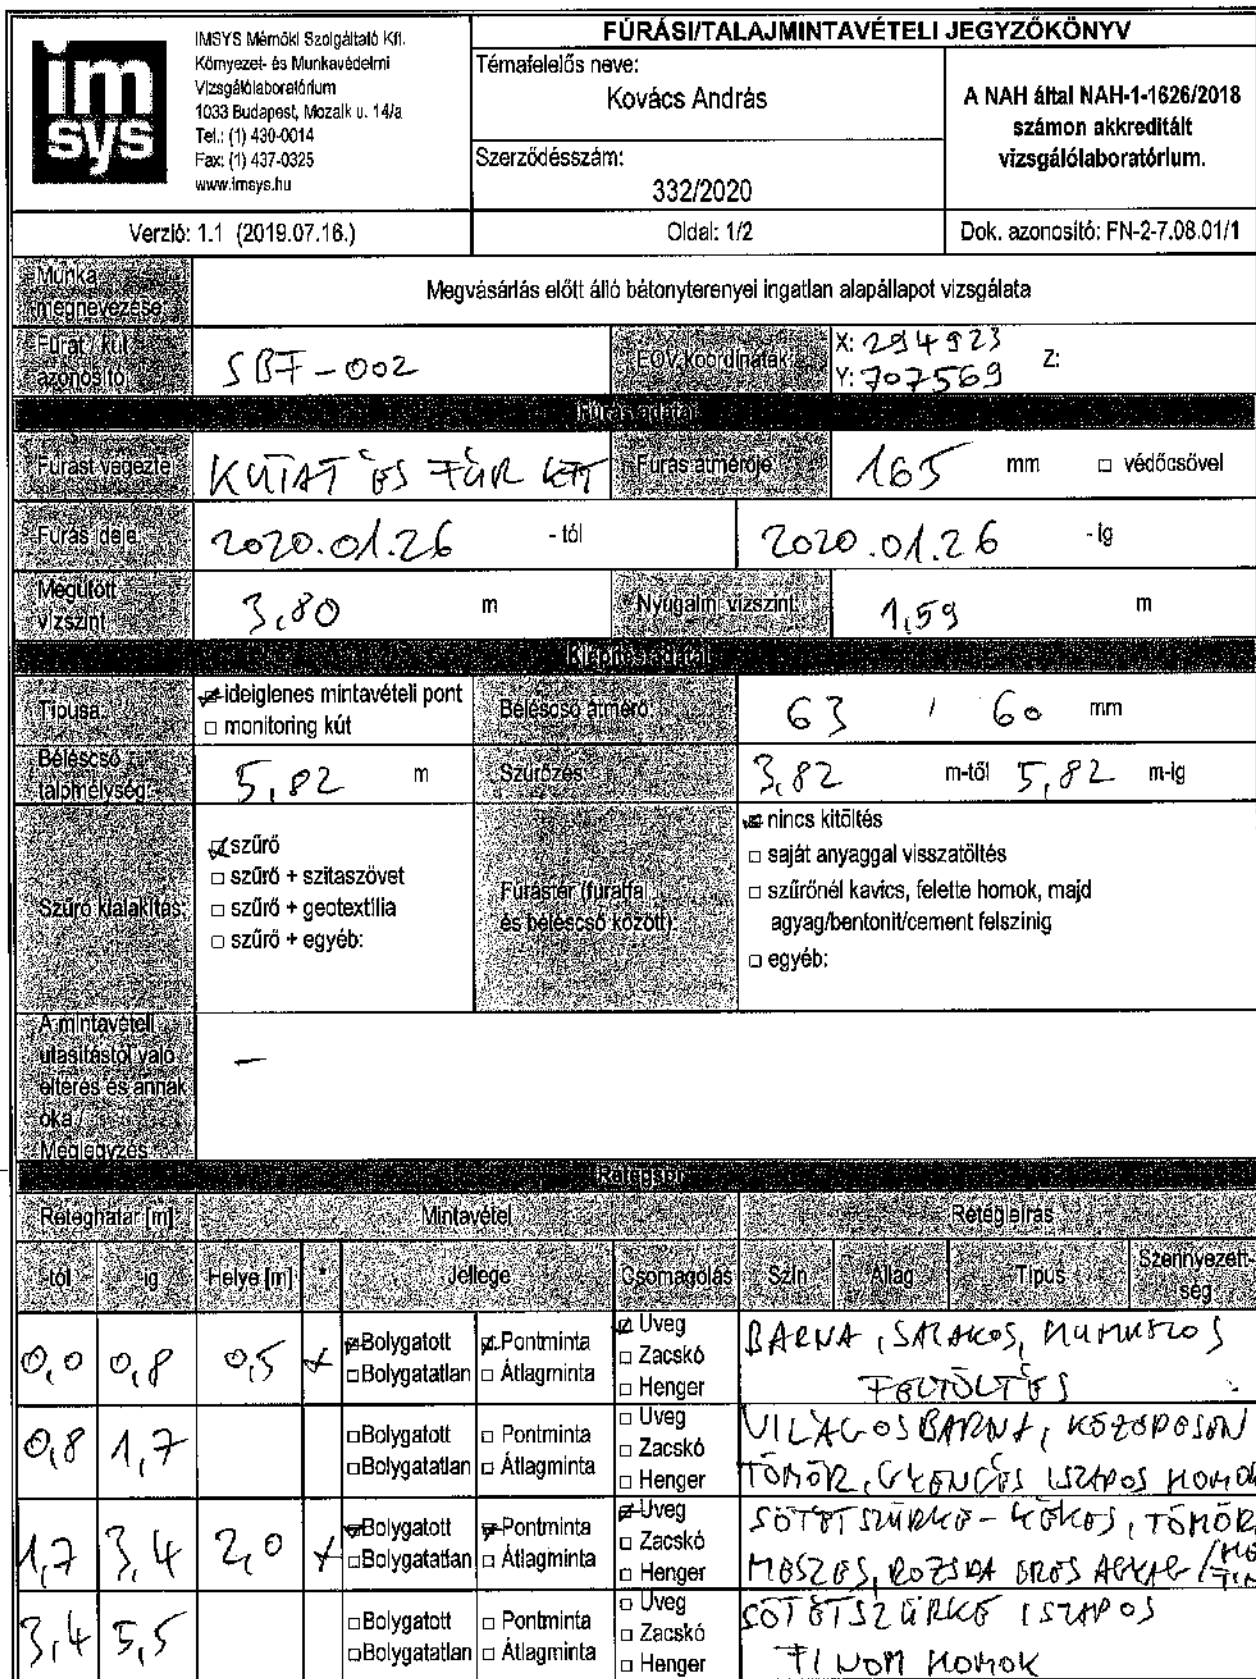 im
sys
IMSYS Mérnöki Szolgáltató Kft.
Környezet- és Munkavédelmi
Vizsgálólaboratórium
1033 Budapest, Mozaik u. 14/a
Tel.: (1) 430-0014
Fax: (1) 437-0325
www.imsys.hu
FÚRÁSI/TALAJMINTAVÉTELI JEGYZŐKÖNYV
Témafelelős neve:
Kovács András
Szerződésszám:
332/2020
A NAH által NAH-1-1626/2018
számon akkreditált
vizsgálólaboratórium.
Verzió: 1.1 (2019.07.16.) Oldal: 1/2 Dok. azonosító: FN-2-7.08.01/1
Munka
megnevezése:
Megvásárlás előtt álló bátonyterenyei ingatlan alapállapot vizsgálata
Furat / kút
azonosító:
SBF-002
EOV koordináták:
X: 294923 Z:
Y: 707569
Fúrás adatai
Fúrást végezte: KUTAT ÉS FÚR KFT Fúrás átmérője: 165 mm □ védőcsővel
Fúrás ideje: 2020.01.26 - tól 2020.01.26 - ig
Megütött
vízszint
3,80 m
* Nyugalmi vízszint: 1,59 m
Kiépítés adatai
Típusa:
ideiglenes mintavételi pont
□ monitoring kút
Béléscső átmérő: 63 / 60 mm
Béléscső
talpmélység:
5,82 m
Szűrőzés: 3,82 m-től 5,82 m-ig
Szűrő kialakítás:
szűrő
□ szűrő + szitaszövet
□ szűrő + geotextília
□ szűrő + egyéb:
Fúrástér (furatfal
és béléscső között):
nincs kitöltés
□ saját anyaggal visszatöltés
□ szűrőnél kavics, felette homok, majd
agyag/bentonit/cement felszínig
□ egyéb:
A mintavételi
utasítástól való
eltérés és annak
oka /
Megjegyzés
–
Rétegsor
Réteghatár [m] Mintavétel Rétegleírás
-tól -ig Helye [m] * Jellege Csomagolás Szín Állag Típus Szennyezett-
ség
0,0 0,8 0,5 x
Bolygatott Pontminta Üveg
□Bolygatatlan □ Átlagminta □ Zacskó
□ Henger
BARNA, SALAKOS, HUMUSZOS
FELTÖLTÉS
0,8 1,7
□Bolygatott □ Pontminta □ Üveg
□Bolygatatlan □ Átlagminta □ Zacskó
□ Henger
VILÁGOSBARNA, KÖZEPESEN
TÖMÖR, GYENGÉS ISZAPOS HOMOK
1,7 3,4 2,0 x
Bolygatott Pontminta Üveg
□Bolygatatlan □ Átlagminta □ Zacskó
□ Henger
SÖTÉTSZÜRKE-KÉKES, TÖMÖR,
MESZES, ROZSDA ERES AGYAG
3,4 5,5
□Bolygatott □ Pontminta □ Üveg
□Bolygatatlan □ Átlagminta □ Zacskó
□ Henger
SÖTÉTSZÜRKE ISZAPOS
FINOM HOMOK